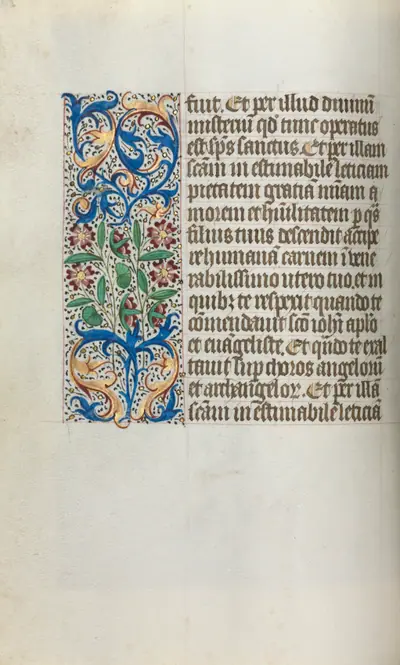 fuit. Et per illud diuinū
misteriū qd̓ tunc operatus
est sp̄s sanctus. Et per illam
sc̄am in estimabile leticiam
pietatem gratiā m̄iam a
morem et hūilitatem p q̄s
filius tuus descendit accipe
re humanā carnem ī vene
rabilissimo utero tuo. et in
quibꝫ te respexit quando te
cōmendauit sc̄o ioh̄i apl̓o
et euāgeliste. Et qn̄do te exal
tauit sup choros angeloꝝ
et archangeloꝝ. Et per illā
sc̄am in estimabile leticiā